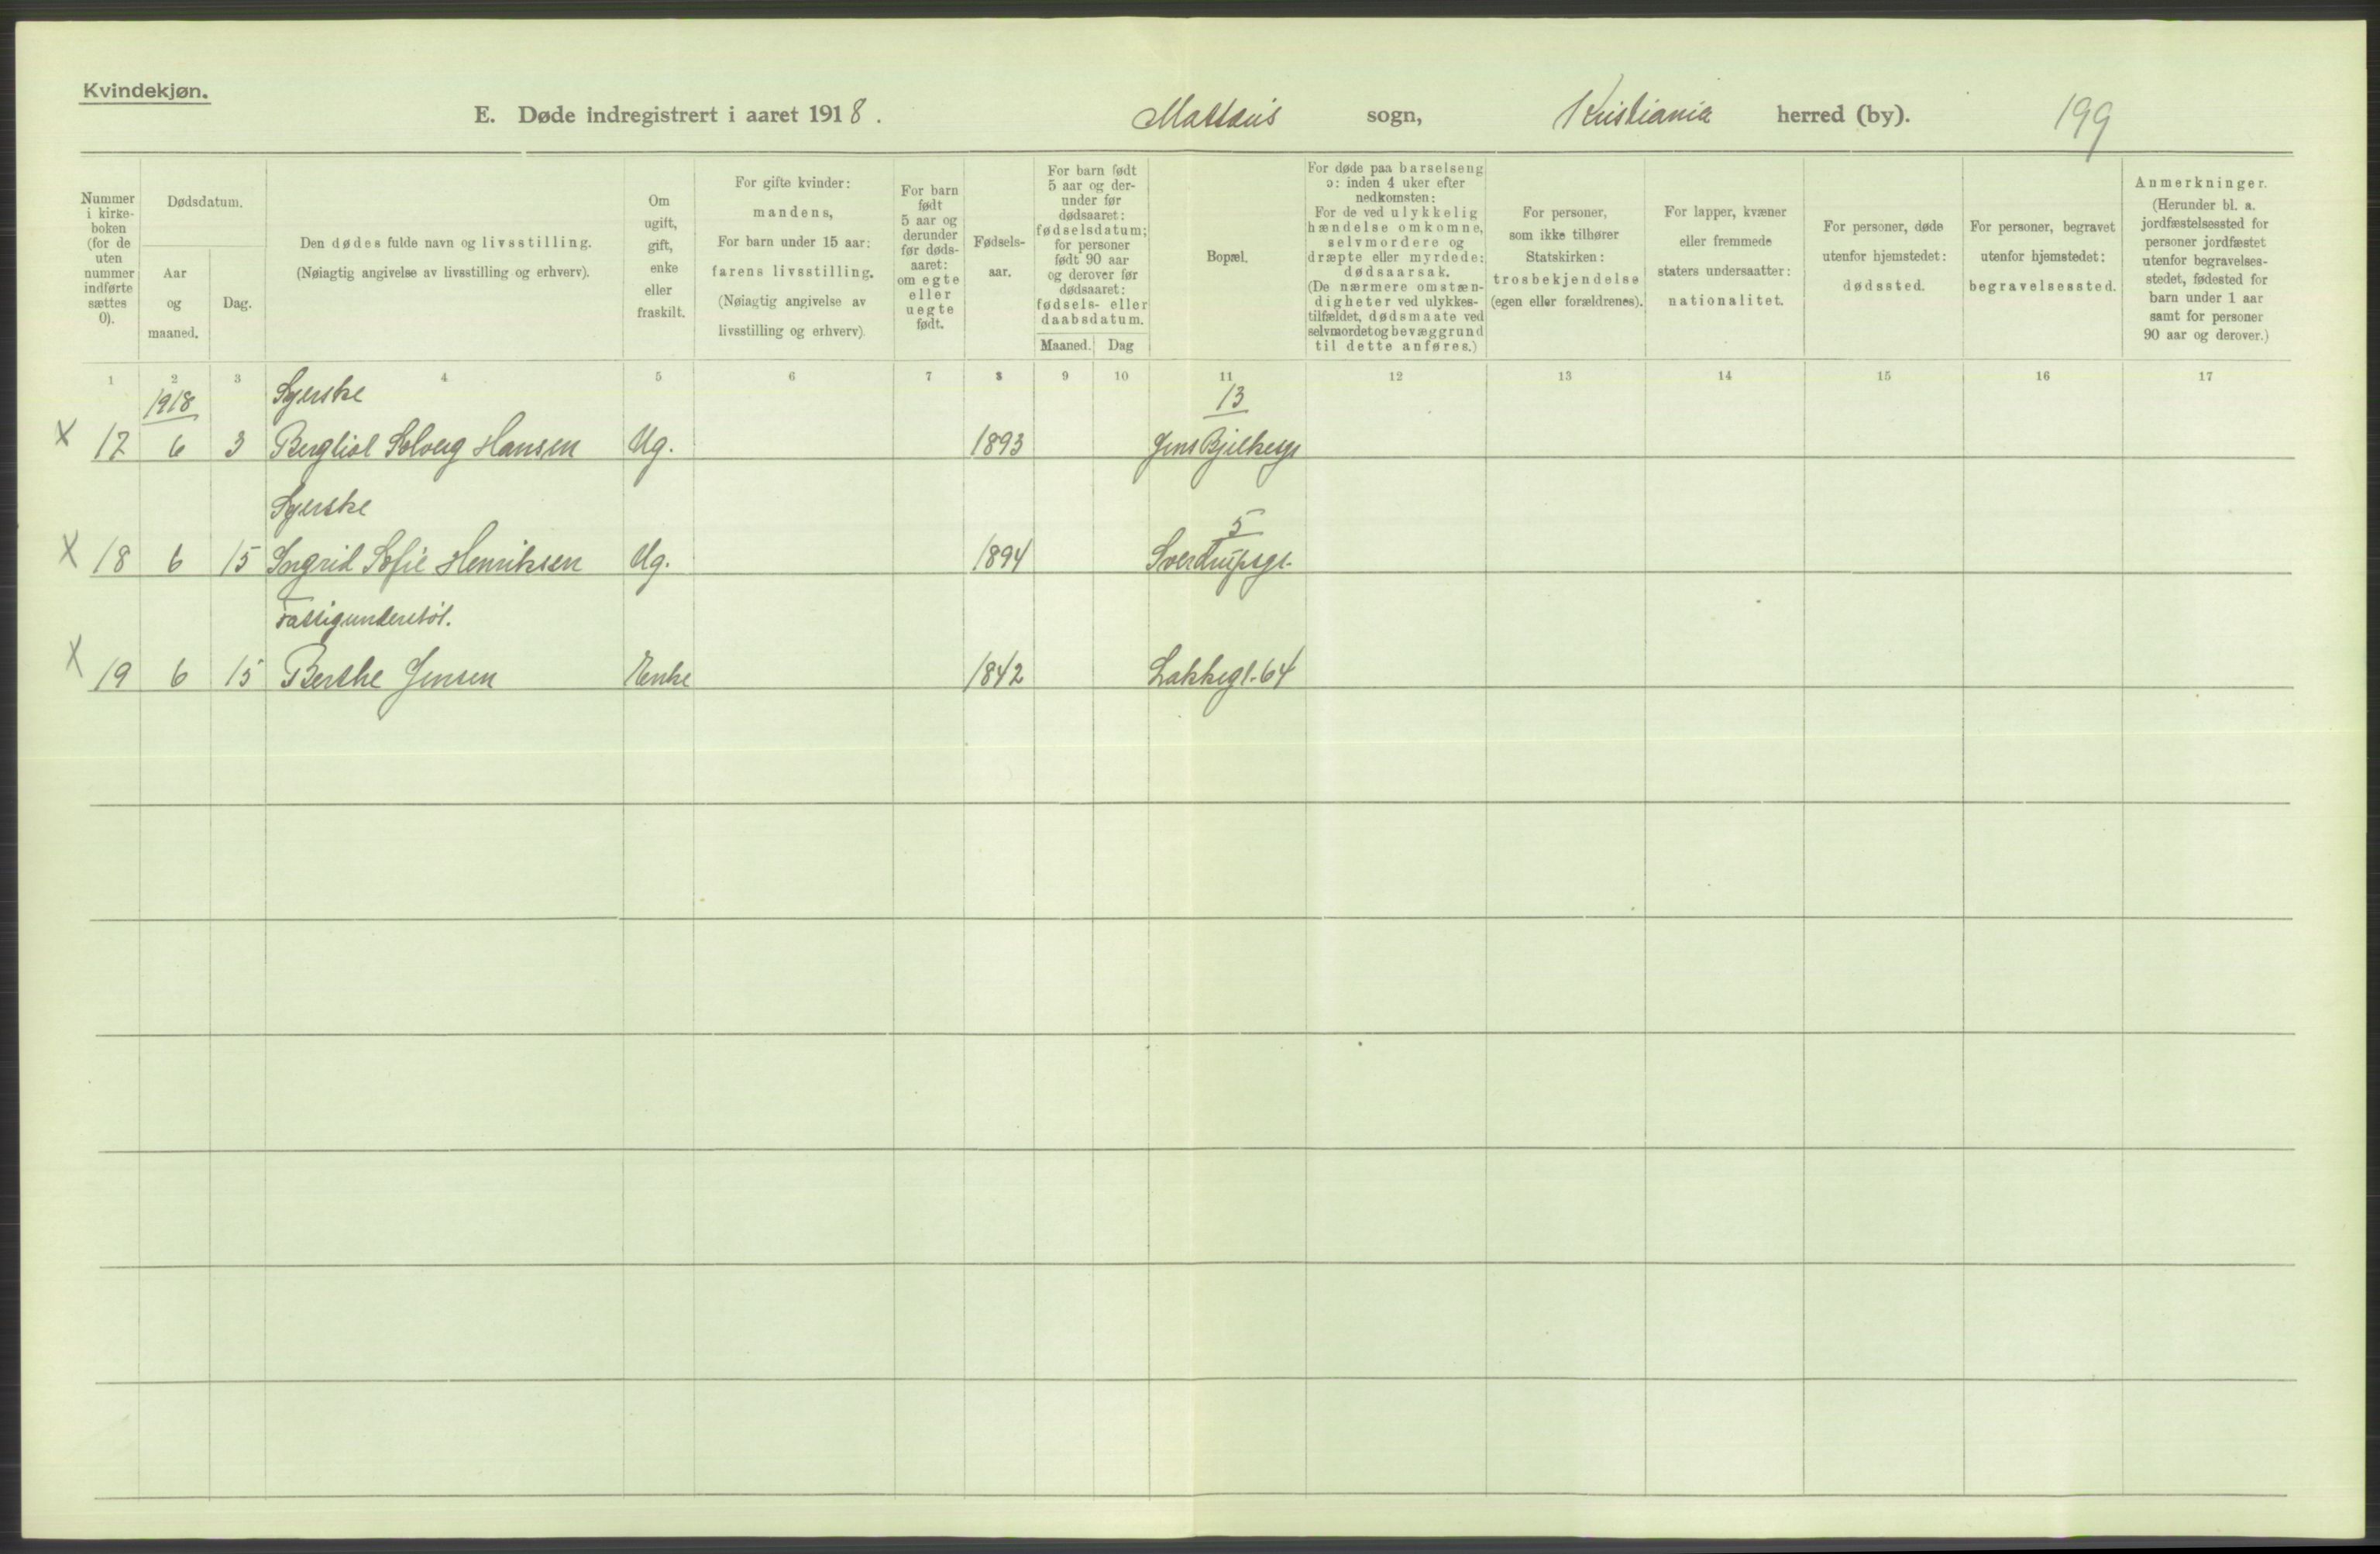 Kvindekjøn.
E. Døde indregistrert i aaret 1918. Mattæus sogn, Kristiania herred (by). 199
Nummer i kirke-boken (for de uten nummer indførte sættes 0).
Dødsdatum.
Aar og maaned.
Dag.
Den dødes fulde navn og livsstilling.
(Nøiagtig angivelse av livsstilling og erhverv).
Om ugift, gift, enke eller fraskilt.
For gifte kvinder: mandens,
For barn under 15 aar: farens livsstilling.
(Nøiagtig angivelse av livsstilling og erhverv).
For barn født 5 aar og derunder før døds-aaret: om egte eller uegte født.
Fødsels-aar.
For barn født 5 aar og der-under før dødsaaret: fødselsdatum; for personer født 90 aar og derover før dødsaaret: fødsels- eller daabsdatum.
Maaned. Dag
Bopæl.
For døde paa barselseng ɔ: inden 4 uker efter nedkomsten:
For de ved ulykkelig hændelse omkomne, selvmordere og dræpte eller myrdede: dødsaarsak.
(De nærmere omstæn-digheter ved ulykkes-tilfældet, dødsmaate ved selvmordet og bevæggrund til dette anføres.)
For personer, som ikke tilhører Statskirken: trosbekjendelse (egen eller forældrenes).
For lapper, kvæner eller fremmede staters undersaatter: nationalitet.
For personer, døde utenfor hjemstedet: dødssted.
For personer, begravet utenfor hjemstedet: begravelsessted.
Anmerkninger.
(Herunder bl. a. jordfæstelsessted for personer jordfæstet utenfor begravelses-stedet, fødested for barn under 1 aar samt for personer 90 aar og derover.)
1 2 3 4 5 6 7 8 9 10 11 12 13 14 15 16 17
1918 Syerske 13
x 17 6 3 Bergliot Solveig Hansen Ug. 1893 Jens Bjelkesgt
Syerske 5
x 18 6 15 Ingrid Sofie Henriksen Ug. 1894 Sverdrupsgt.
Fattigunderstøt.
x 19 6 15 Berthe Jensen Enke 1842 Lakkegt. 64